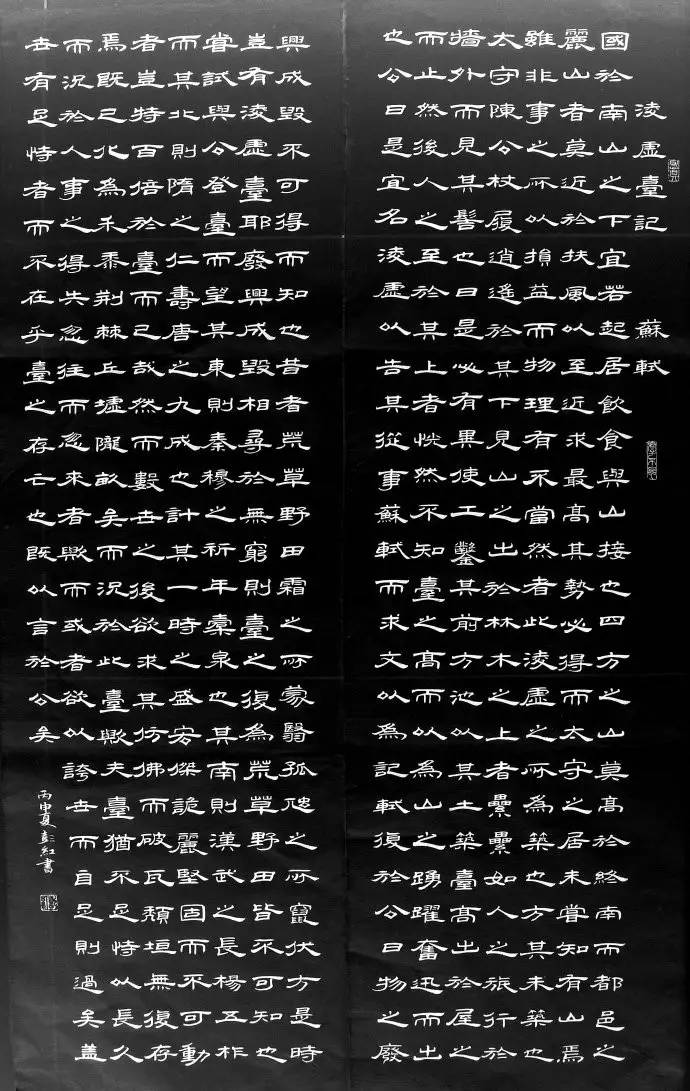 凌虛臺記 蘇軾
國於南山之下宜若起居飲食與山接也四方之山莫高於終南而都邑之
麗山者莫近於扶風以至近求最高其勢必得而太守之居未嘗知有山焉
雖非事之所以損益而物理有不當然者此凌虛之所為築也方其未築也
太守陳公杖履逍遙於其下見山之出於林木之上者纍纍如人之旅行於
牆外而見其髻也曰是必有異使工鑿其前方池以其土築臺高出於屋之
而止然後人之至於其上者恍然不知臺之高而以為山之踴躍奮迅而出
也公曰是宜名凌虛以告其從事蘇軾而求文以為記軾復於公曰物之廢
興成毀不可得而知也昔者荒草野田霜之所蒙翳狐虺之所竄伏方是時
豈有凌虛臺耶廢興成毀相尋於無窮則臺之復為荒草野田皆不可知也
嘗試與公登臺而望其東則秦穆之祈年橐泉也其南則漢武之長楊五柞
而其北則隋之仁壽唐之九成也計其一時之盛宏傑詭麗堅固而不可動
者豈特百倍於臺而已哉然而數世之後欲求其彷彿而破瓦頹垣無復存
焉既已化為禾黍荊棘丘墟隴畝矣而況於此臺歟夫臺猶不足恃以長久
而況於人事之得失忽往而忽來者歟而或者欲以誇世而自足則過矣蓋
世有足恃者而不在乎臺之存亡也既以言於公矣
丙申夏彭紅書